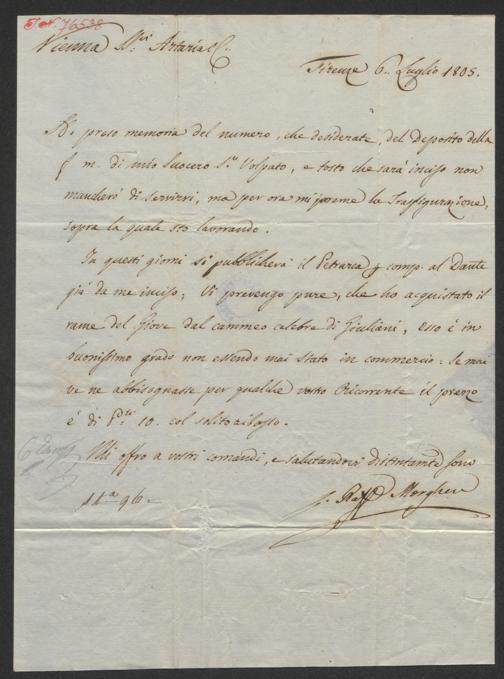 76538
Vienna Sri. Artaria e C.
Firenze 6. Luglio 1805.
Ho preso memoria del numero, che desiderate, del Deposito della
f. m. di mio Suocero Sr. Volpato, e tosto che sarà inciso non
mancherò di servirvi, ma per ora mi preme la Trasfigurazione,
sopra la quale sto lavorando.
In questi giorni si pubblicherà il Petrarca p comp. al Dante
già da me inciso; Vi prevengo pure, che ho acquistato il
rame del Giove dal cammeo celebre di Giuliani, esso è in
buonissimo grado non essendo mai stato in commercio: se mai
ve ne abbisognasse per qualche vostro Ricorrente il prezzo
è di 10. col solito ribasso.
Mi offro a vostri comandi, e salutandovi distintamte. sono
Raff. Morghen